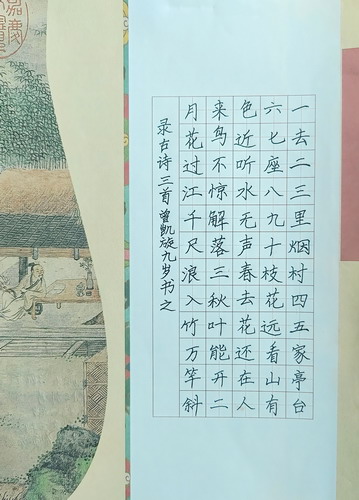 一去二三里烟村四五家亭台
六七座八九十枝花远看山有
色近听水无声春去花还在人
来鸟不惊解落三秋叶能开二
月花过江千尺浪入竹万竿斜
录古诗三首曾凯旋九岁书之
嘉慶